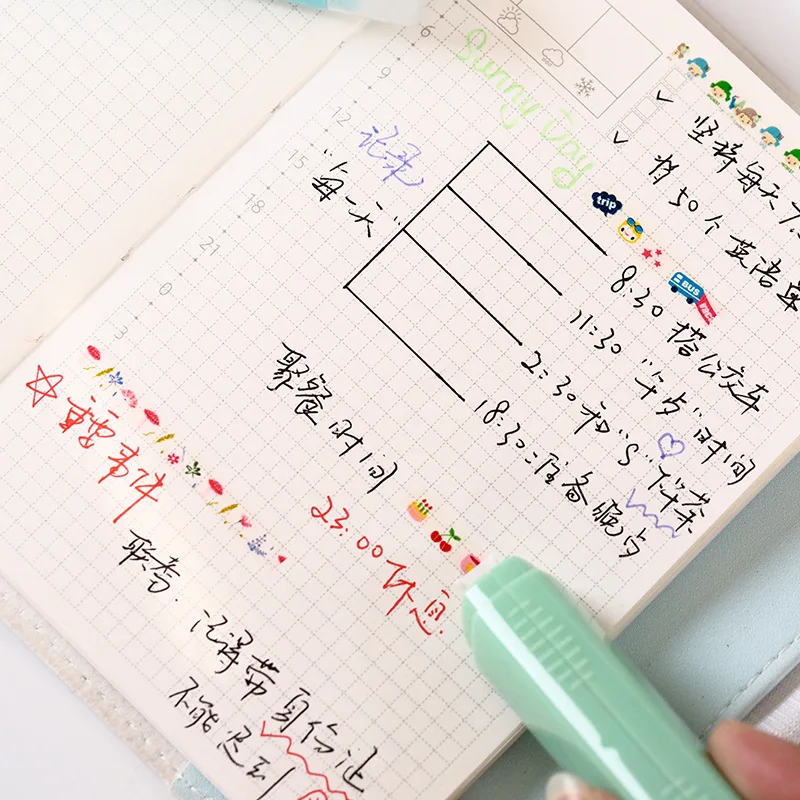 Sunny Day
6
9
12
15
18
21
0
3
坚持每天7.
背50个英语单
记录
"每一天"
trip
BUS
8:30 搭公交车
11:30 "午歺"时间
2:30 和"S"下午茶
18:30 准备晚歺
聚餐时间
23:00 休息.
重要事件
联考.
记得带身份证
不能迟到